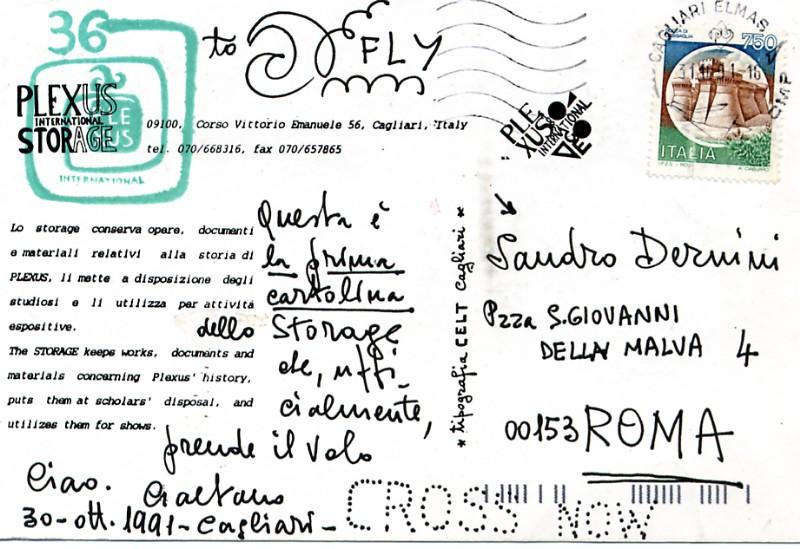 36
to FLY
PLEXUS
INTERNATIONAL
STORAGE
PLEXUS
INTERNATIONAL
09100, Corso Vittorio Emanuele 56, Cagliari, Italy
tel. 070/668316, fax 070/657865
PLEXUS
INTERNATIONAL
CAGLIARI ELMAS
750
ITALIA
Lo storage conserva opere, documenti
e materiali relativi alla storia di
PLEXUS, li mette a disposizione degli
studiosi e li utilizza per attività
espositive.
The STORAGE keeps works, documents and
materials concerning Plexus' history,
puts them at scholars' disposal, and
utilizes them for shows.
Questa è
la prima
cartolina
dello Storage
che, uffi-
cialmente,
prende il volo
Ciao. Gaetano
30-ott. 1991-Cagliari-
CROSS NOW
* tipografia CELT Cagliari *
Sandro Dernini
Pzza S.GIOVANNI
DELLA MALVA 4
00153 ROMA